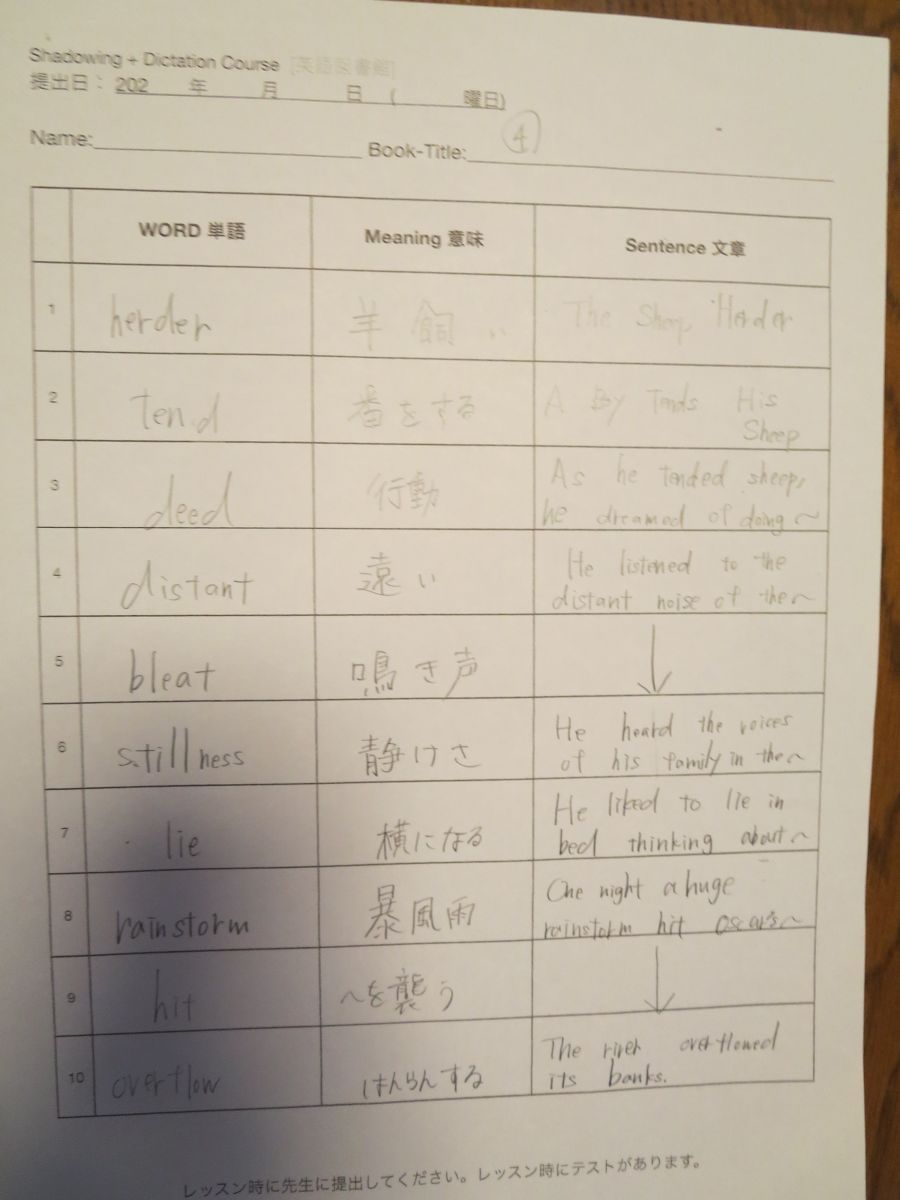 Shadowing + Dictation Course [英語図書館]
提出日： 202 年 月 日 ( 曜日)
Name: Book-Title: ④
WORD 単語 Meaning 意味 Sentence 文章
1 herder 羊飼い The Sheep Herder
2 tend 番をする A By Tends His
Sheep
3 deed 行動 As he tended sheep,
he dreamed of doing ~
4 distant 遠い He listened to the
distant noise of the ~
5 bleat 鳴き声 ↓
6 stillness 静けさ He heard the voices
of his family in the ~
7 lie 横になる He liked to lie in
bed thinking about ~
8 rainstorm 暴風雨 One night a huge
rainstorm hit Oscar's ~
9 hit ~を襲う ↓
10 overflow はんらんする The river overflowed
its banks.
レッスン時に先生に提出してください。レッスン時にテストがあります。